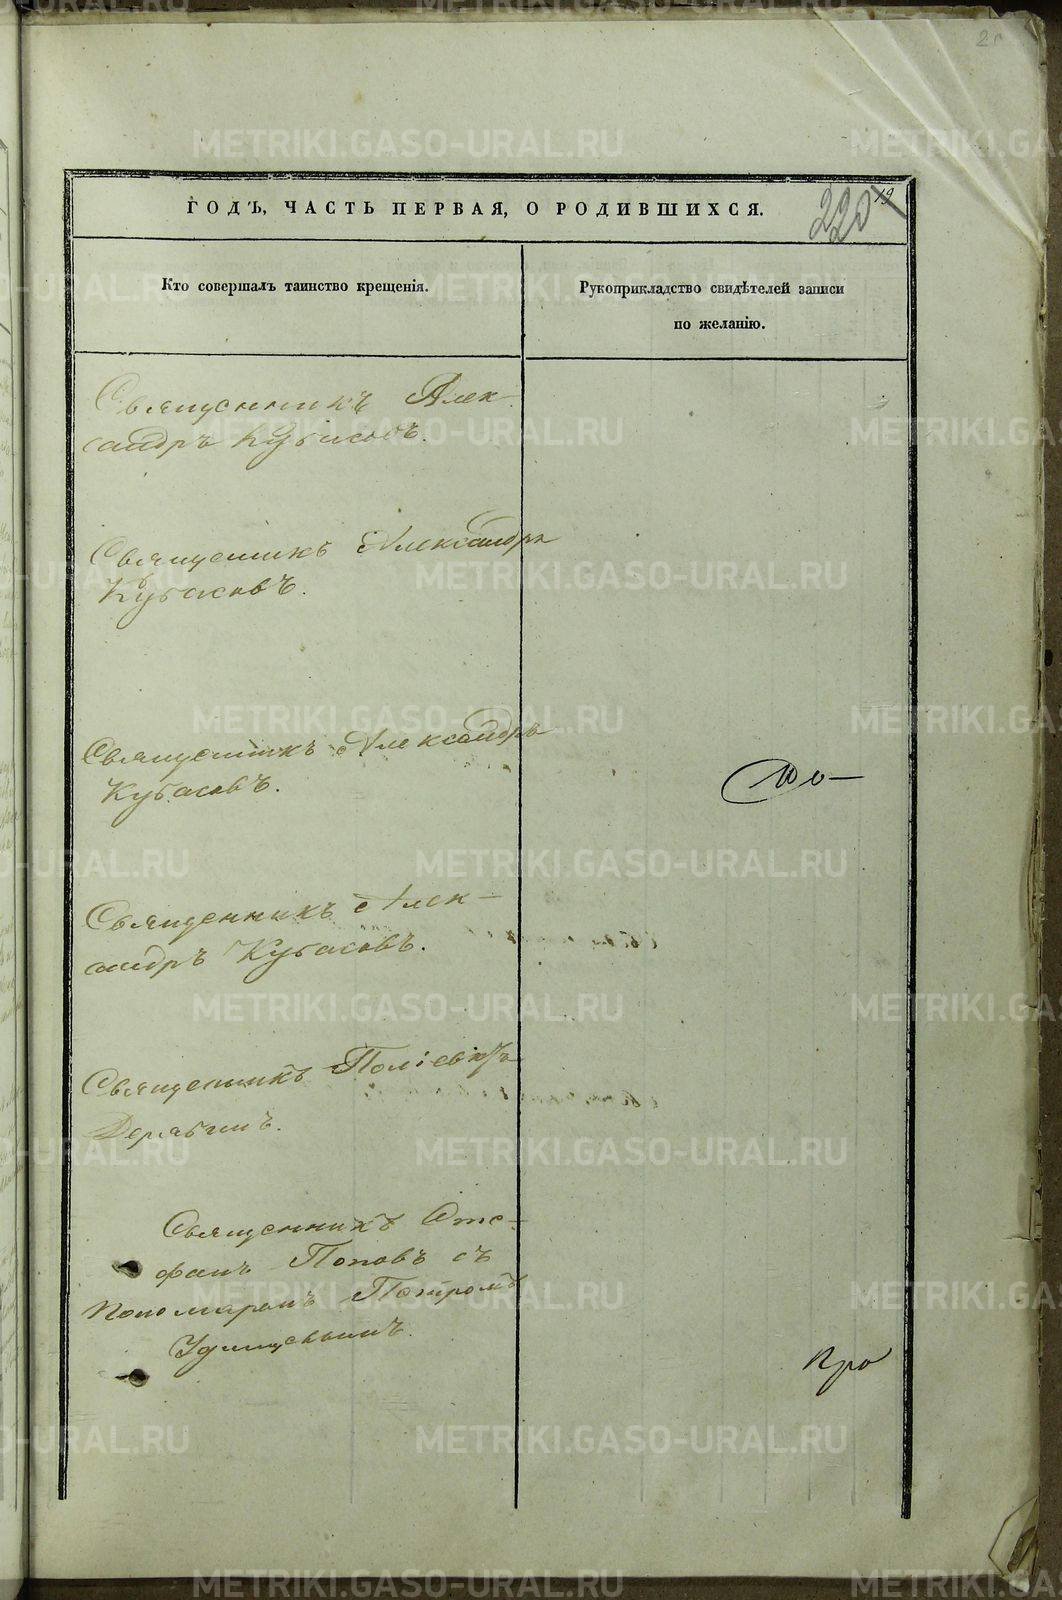 2г
19
220
ГОДЪ, ЧАСТЬ ПЕРВАЯ, О РОДИВШИХСЯ.
Кто совершалъ таинство крещенія.
Рукоприкладство свидѣтелей записи
по желанію.
Священникъ Алек-
сандръ Кубасовъ.
Священникъ Александръ
Кубасовъ.
Священникъ Александръ
Кубасовъ.
Священникъ Алек-
сандръ Кубасовъ.
Священникъ Поліевктъ
Дерябинъ.
Священникъ Сте-
фанъ Поповъ съ
Пономаремъ Петромъ
По-
про
METRIKI.GASO-URAL.RU